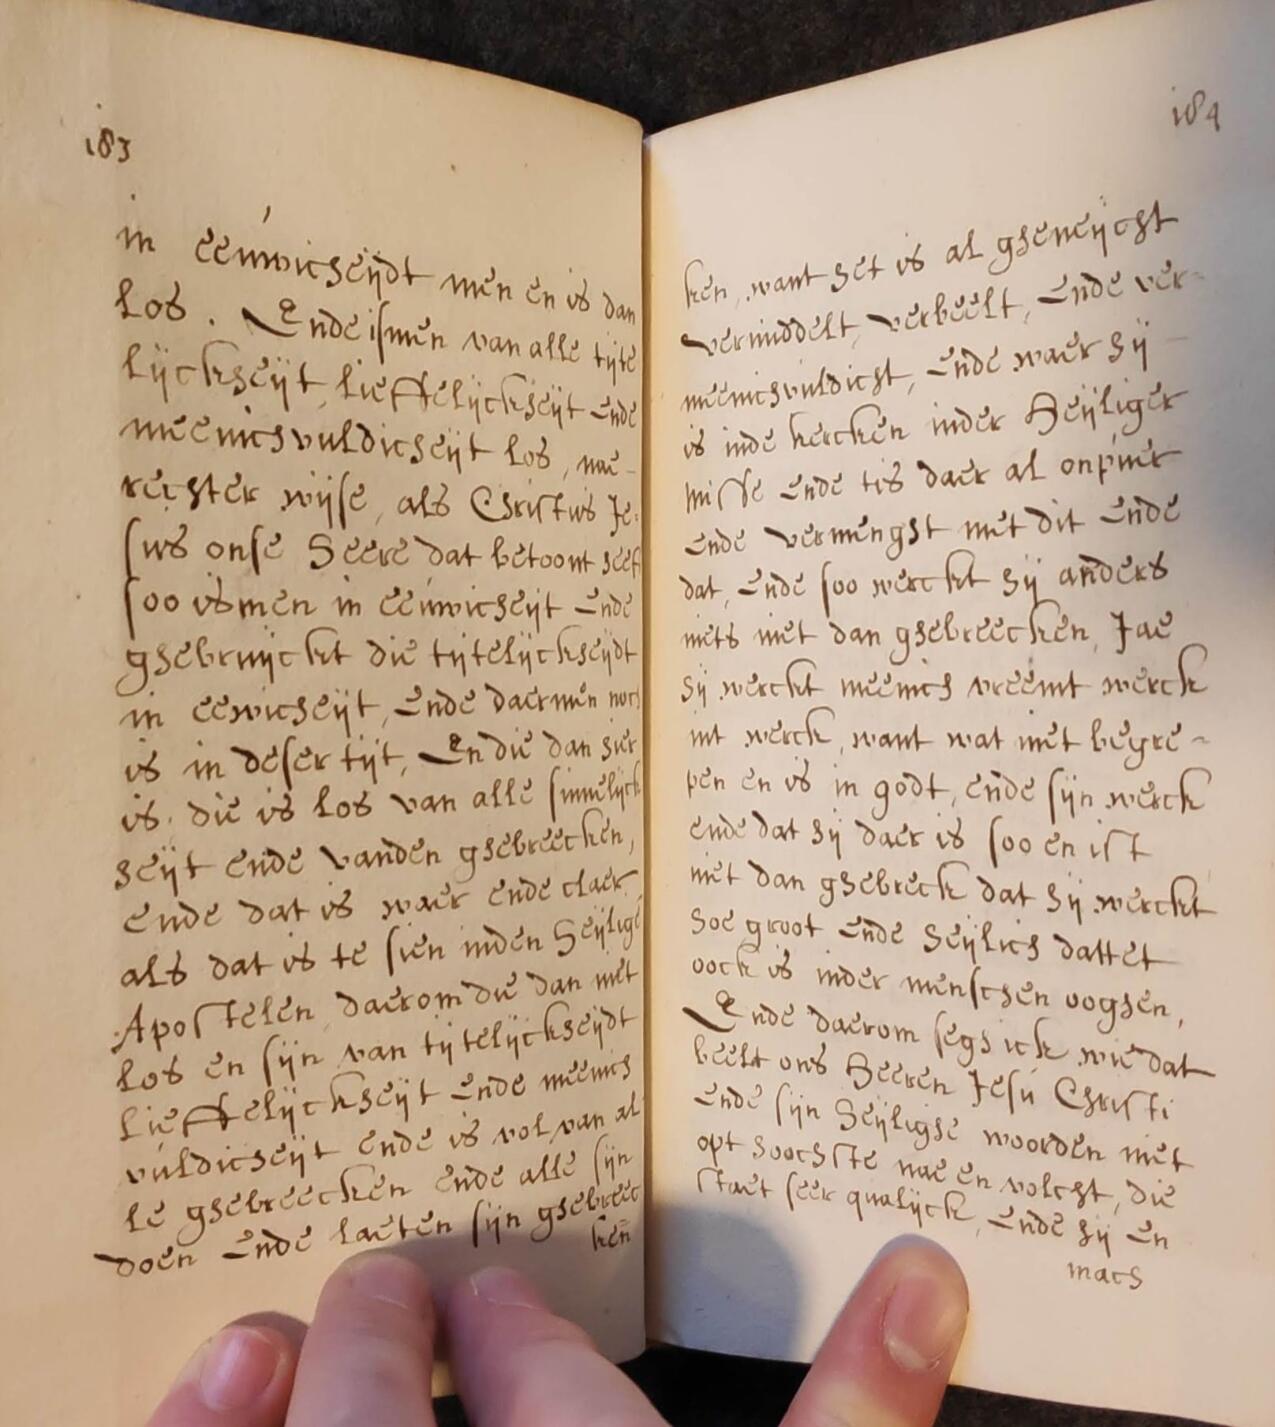 183
in eeúwicheijdt men en is dan
los. Ende ismen van alle tijte
lijckheijt, lieffelijckheijt ende
meenichvuldicheijt los, nae-
rechter wijse, als Christus Je-
sus onse Heere dat betoont heeft
soo ismen in eeúwicheijt ende
ghebruijckt die tijtelijckheijdt
in eewicheijt, ende daermen noch
is in deser tijt, En die dan hier
is. die is los van alle sinnelijck
heijt ende vanden ghebreecken,
ende dat is waer ende claer
als dat is te sien inden heijlige
Apostelen, daerom die dan niet
los en sijn van tijtelijckheijdt
lieffelijckheijt ende meenich
vúldicheijt ende is vol van al
le ghebreecken ende alle sijn
doen ende laeten sijn ghebreec
ken
184
ken, want het is al gheneijcht
vermiddelt, verbeelt, ende ver-
meenichvuldicht, ende waer hij
is inde kercken inder Heijliger
misse ende tis daer al onpuer
ende vermenght met dit ende
dat, ende soo werckt hij anders
niets niet dan ghebreecken, Jae
hij werckt meenich vreemt werck
int werck, want wat niet begre-
pen en is in godt, ende sijn werck
ende dat hij daer is soo en ist
niet dan ghebreck dat hij werckt
hoe groot ende heijlich dattet
oock is inder menschen ooghen,
Ende daerom segh ick wie dat
beelt ons Heeren Jesú Christi
ende sijn heijlighe woorden niet
opt hoochste nae en volcht, die
staet seer qualijck, ende hij en
mach